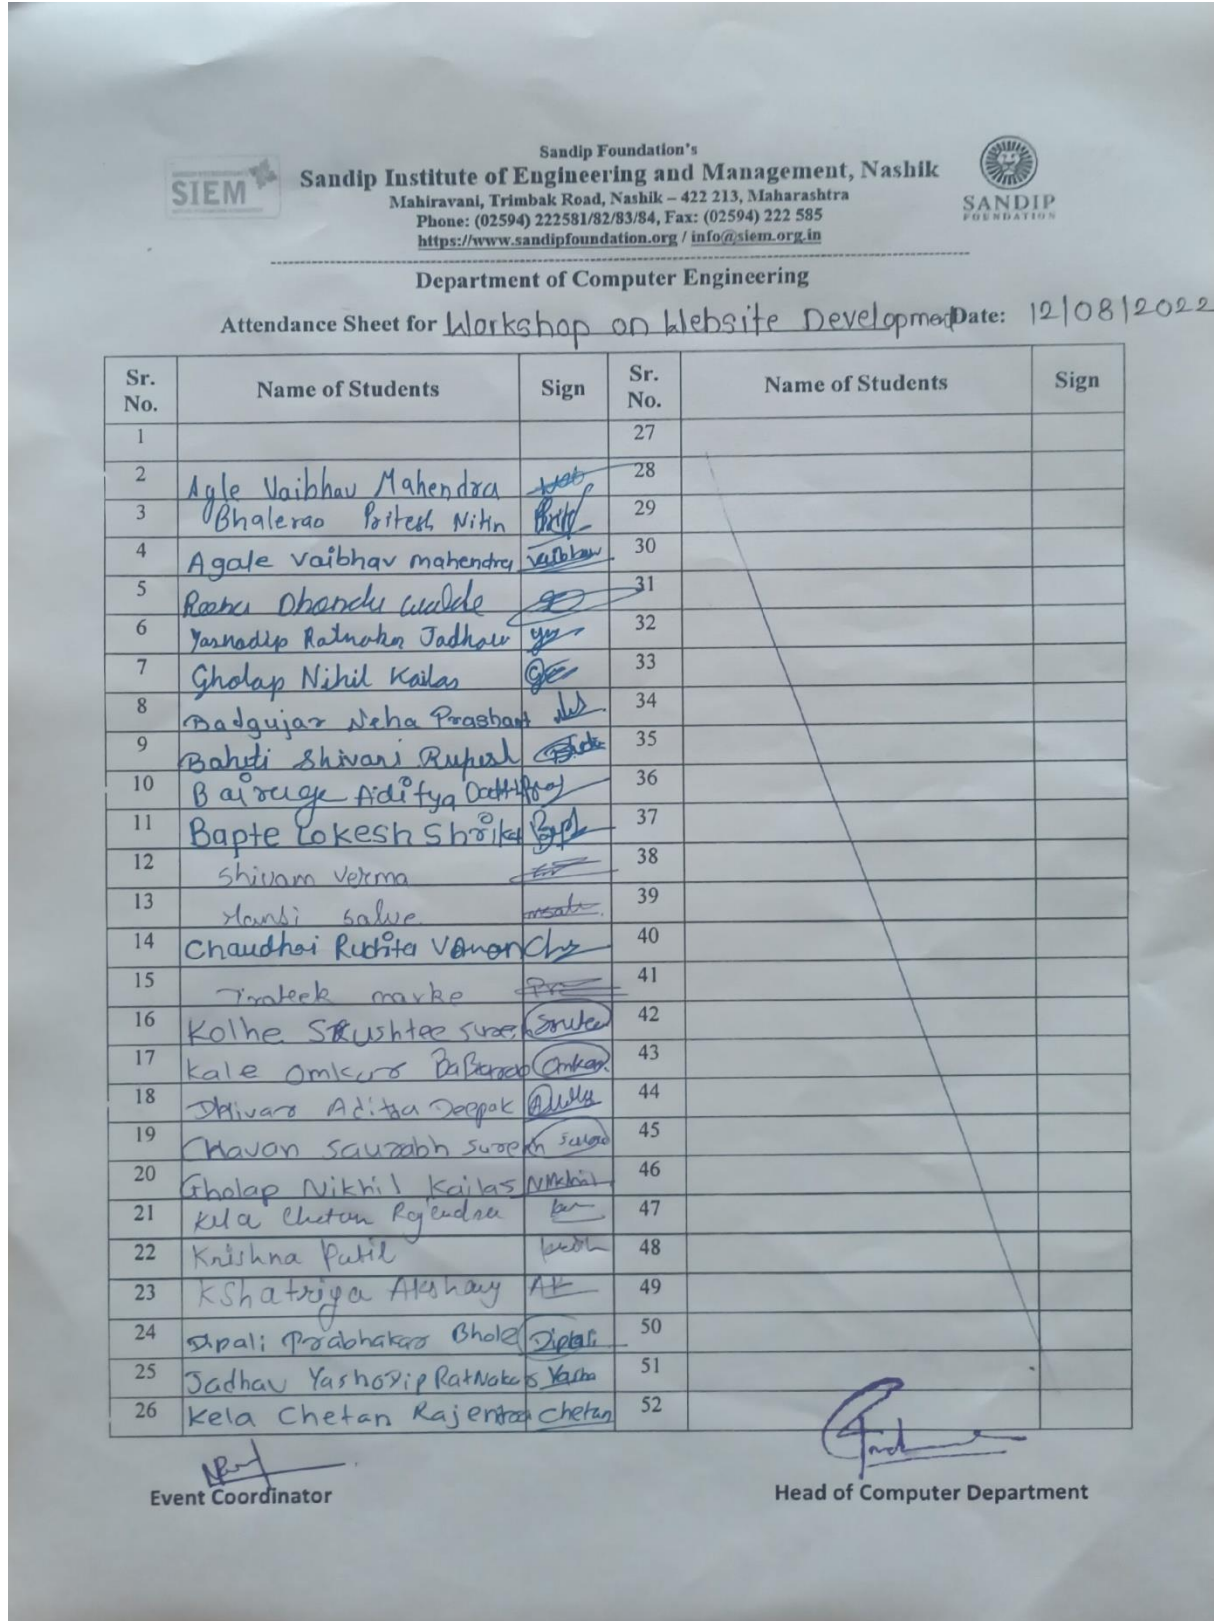 SIEM
Sandip Foundation's
Sandip Institute of Engineering and Management, Nashik
Mahiravani, Trimbak Road, Nashik – 422 213, Maharashtra
Phone: (02594) 222581/82/83/84, Fax: (02594) 222 585
https://www.sandipfoundation.org / info@siem.org.in
SANDIP
FOUNDATION
Department of Computer Engineering
Attendance Sheet for Workshop on Website Development Date: 12/08/2022
Sr. No. Name of Students Sign Sr. No. Name of Students Sign
1 27
2 Agle Vaibhav Mahendra 28
3 Bhalerao Pritesh Nitin 29
4 Agale Vaibhav mahendra Vaibhav 30
5 Dhondu 31
6 Ratnakar Jadhav 32
7 Gholap Nihil Kailas 33
8 Badgujar Neha Prashant 34
9 Shivani Rupesh 35
10 Aditya 36
11 Bapte Lokesh 37
12 Shivam Verma 38
13 Mansi Salve 39
14 Ruchita 40
15 Prateek 41
16 Kolhe 42
17 Kale Omkar Omkar 43
18 Aditya Deepak 44
19 Chavan Saurabh Suresh 45
20 Gholap Nikhil Kailas Nikhil 46
21 Kela Chetan Rajendra 47
22 Krishna Patil 48
23 Kshatriya Akshay AK 49
24 Dipali Prabhakar Bhole Dipali 50
25 Jadhav Yashodip Yasho 51
26 Kela Chetan Rajendra Chetan 52
Event Coordinator
Head of Computer Department